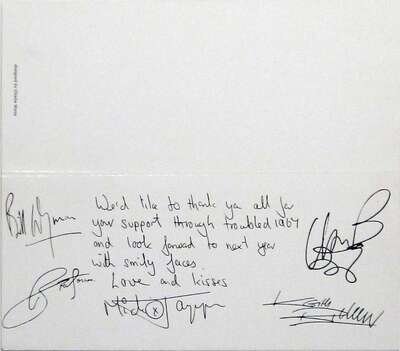 designed by Charlie Watts
We'd like to thank you all for
your support through troubled 1967
and look forward to next year
with smily faces
Love and kisses
Bill Wyman
Mick Jagger
Keith